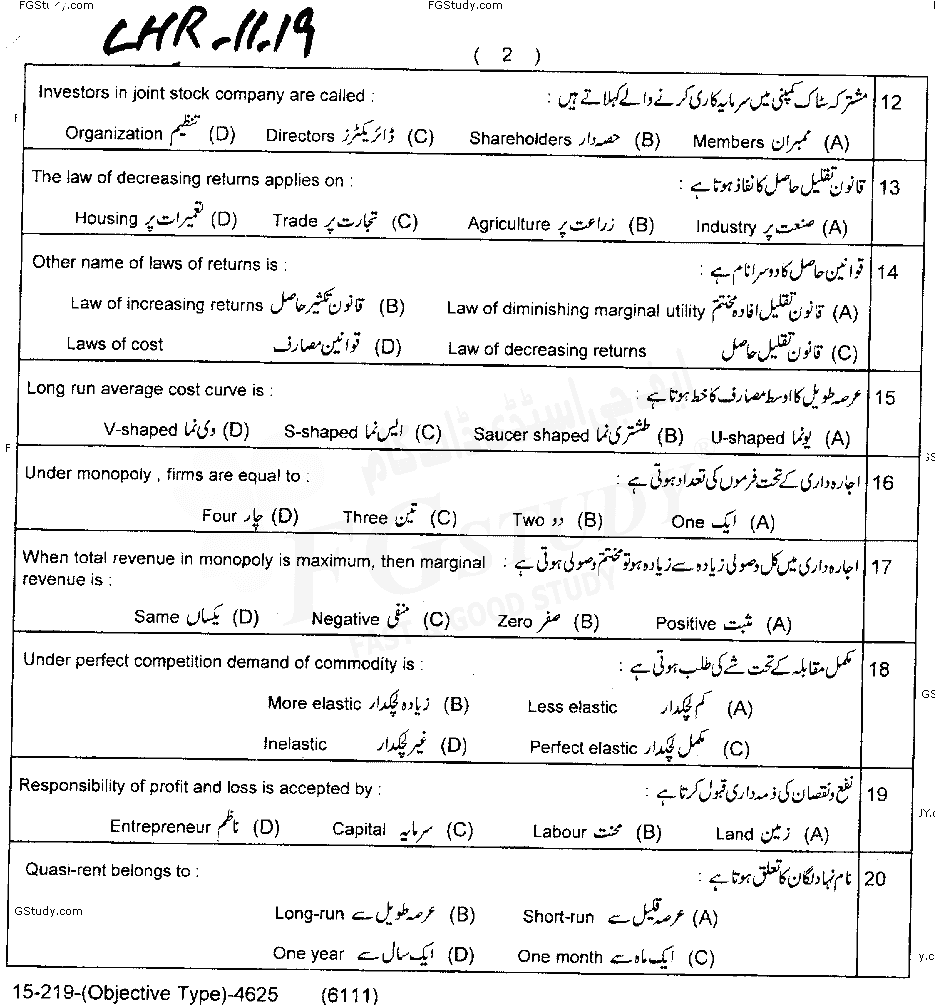 FGStudy.com FGStudy.com
LHR-11-19
( 2 )
Investors in joint stock company are called : مشترکہ سٹاک کمپنی میں سرمایہ کاری کرنے والے کہلاتے ہیں : 12
Organization تنظیم (D) Directors ڈائریکٹرز (C) Shareholders حصہ دار (B) Members ممبران (A)
The law of decreasing returns applies on : قانون تقلیل حاصل کا نفاذ ہوتا ہے : 13
Housing تعمیرات پر (D) Trade تجارت پر (C) Agriculture زراعت پر (B) Industry صنعت پر (A)
Other name of laws of returns is : قوانین حاصل کا دوسرا نام ہے : 14
Law of increasing returns قانون تکثیر حاصل (B) Law of diminishing marginal utility قانون تقلیل افادہ مختتم (A)
Laws of cost قوانین مصارف (D) Law of decreasing returns قانون تقلیل حاصل (C)
Long run average cost curve is : عرصہ طویل کا اوسط مصارف کا خط ہوتا ہے : 15
V-shaped وی نما (D) S-shaped ایس نما (C) Saucer shaped طشتری نما (B) U-shaped یو نما (A)
Under monopoly , firms are equal to : اجارہ داری کے تحت فرموں کی تعداد ہوتی ہے : 16
Four چار (D) Three تین (C) Two دو (B) One ایک (A)
When total revenue in monopoly is maximum, then marginal اجارہ داری میں کل وصولی زیادہ سے زیادہ ہو تو مختتم وصولی ہوتی ہے : 17
revenue is :
Same یکساں (D) Negative منفی (C) Zero صفر (B) Positive مثبت (A)
Under perfect competition demand of commodity is : مکمل مقابلہ کے تحت شے کی طلب ہوتی ہے : 18
More elastic زیادہ لچکدار (B) Less elastic کم لچکدار (A)
Inelastic غیر لچکدار (D) Perfect elastic مکمل لچکدار (C)
Responsibility of profit and loss is accepted by : نفع و نقصان کی ذمہ داری قبول کرتا ہے : 19
Entrepreneur ناظم (D) Capital سرمایہ (C) Labour محنت (B) Land زمین (A)
Quasi-rent belongs to : نام نہاد لگان کا تعلق ہوتا ہے : 20
GStudy.com Long-run عرصہ طویل سے (B) Short-run عرصہ قلیل سے (A)
One year ایک سال سے (D) One month ایک ماہ سے (C)
15-219-(Objective Type)-4625 (6111)
ایف جی اسٹڈی ڈاٹ کام
FGSTUDY
FAST GOOD STUDY